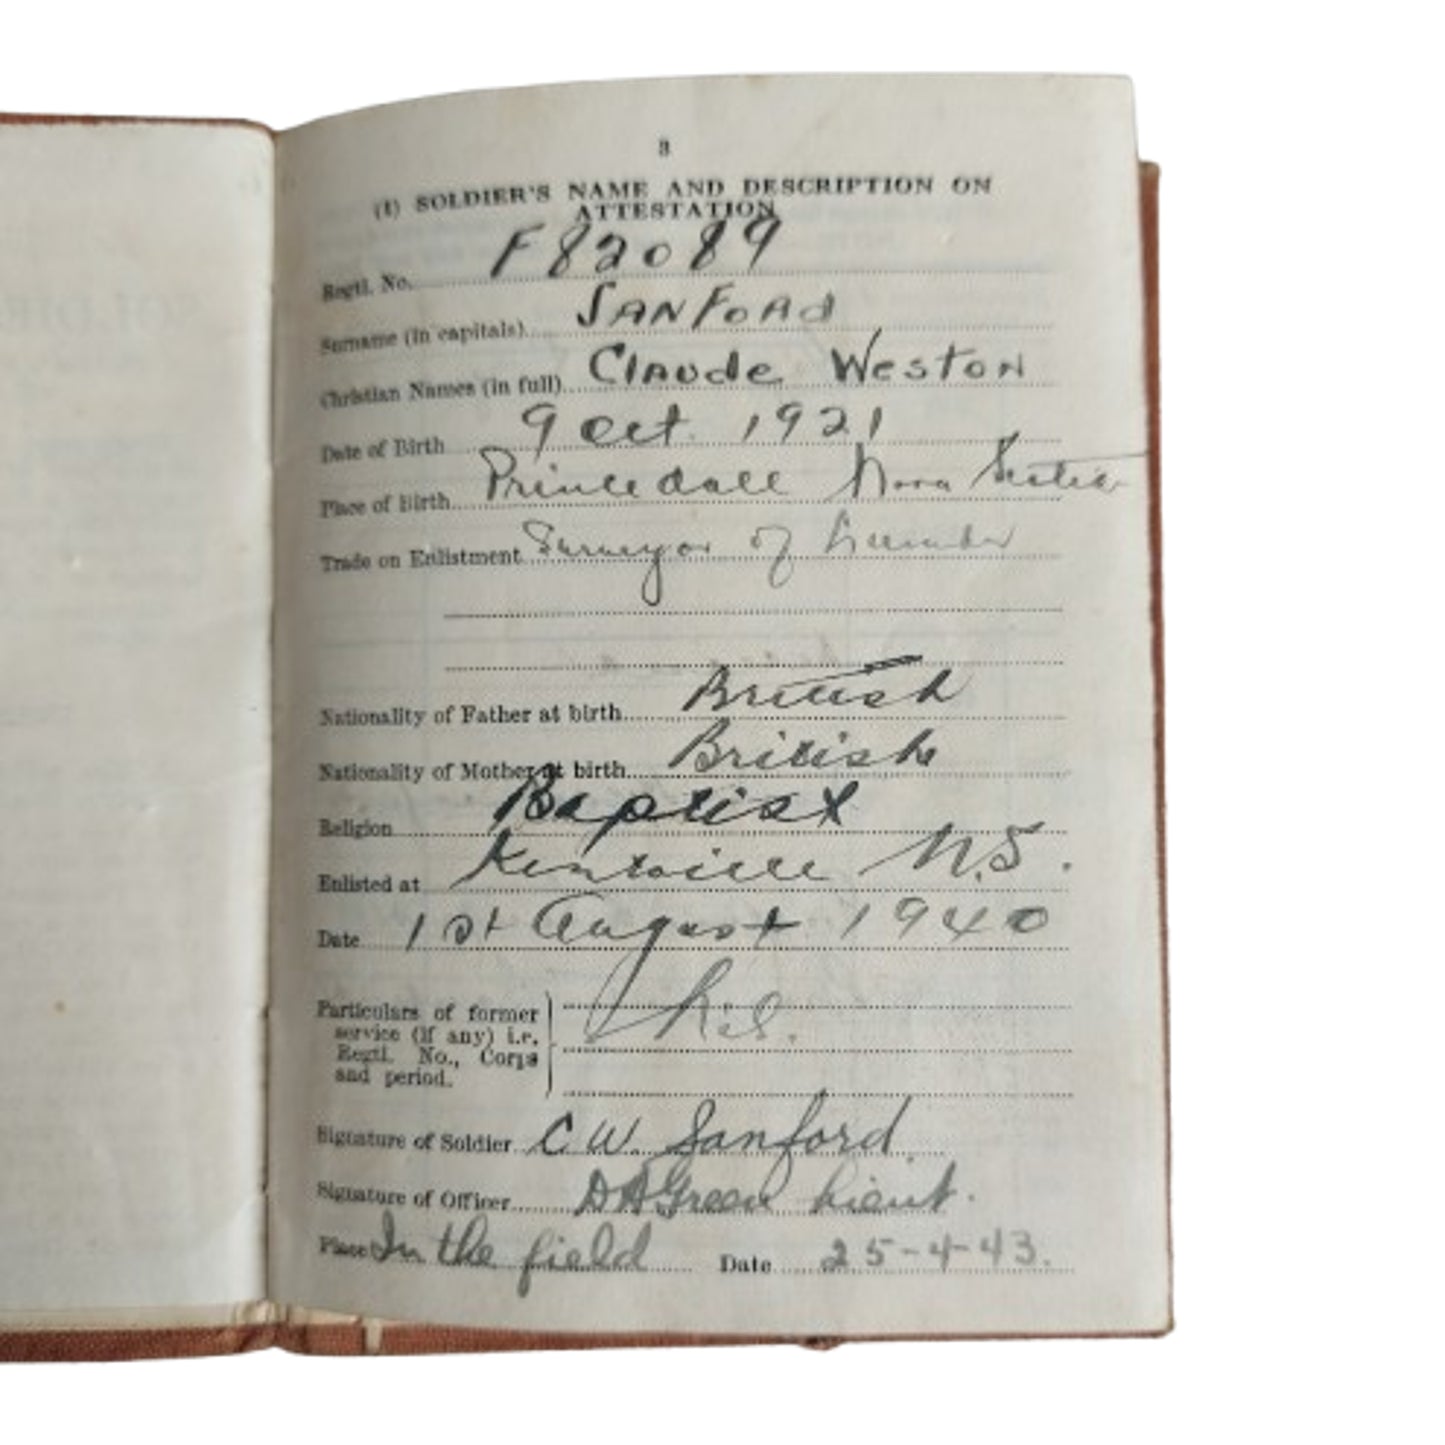 3
(I) SOLDIER'S NAME AND DESCRIPTION ON
ATTESTATION
Regtl. No. F 82089
Surname (in capitals) SANFORd
Christian Names (in full) Claude Weston
Date of Birth 9 Oct. 1921
Place of Birth Princedall Nova Scotia
Trade on Enlistment Surveyor of Lumber
Nationality of Father at birth British
Nationality of Mother at birth British
Religion Baptist
Enlisted at Kentville N.S.
Date 1st August 1940
Particulars of former
service (if any) i.e.
Regtl. No., Corps
and period.
Signature of Soldier C W. Sanford
Signature of Officer D A Green Lieut.
Place In the field Date 25-4-43.